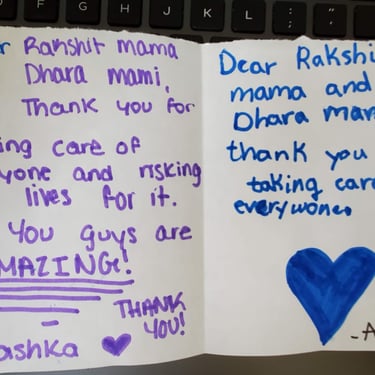 Rakshit mama
Dhara mami,
Thank you for
care of
and risking
lives for it.
You guys are
AMAZING!
THANK
YOU!
Dear Rakshi
mama and
Dhara mam
thank you
taking car
everywone.
-A
F
G
H
J
K
L